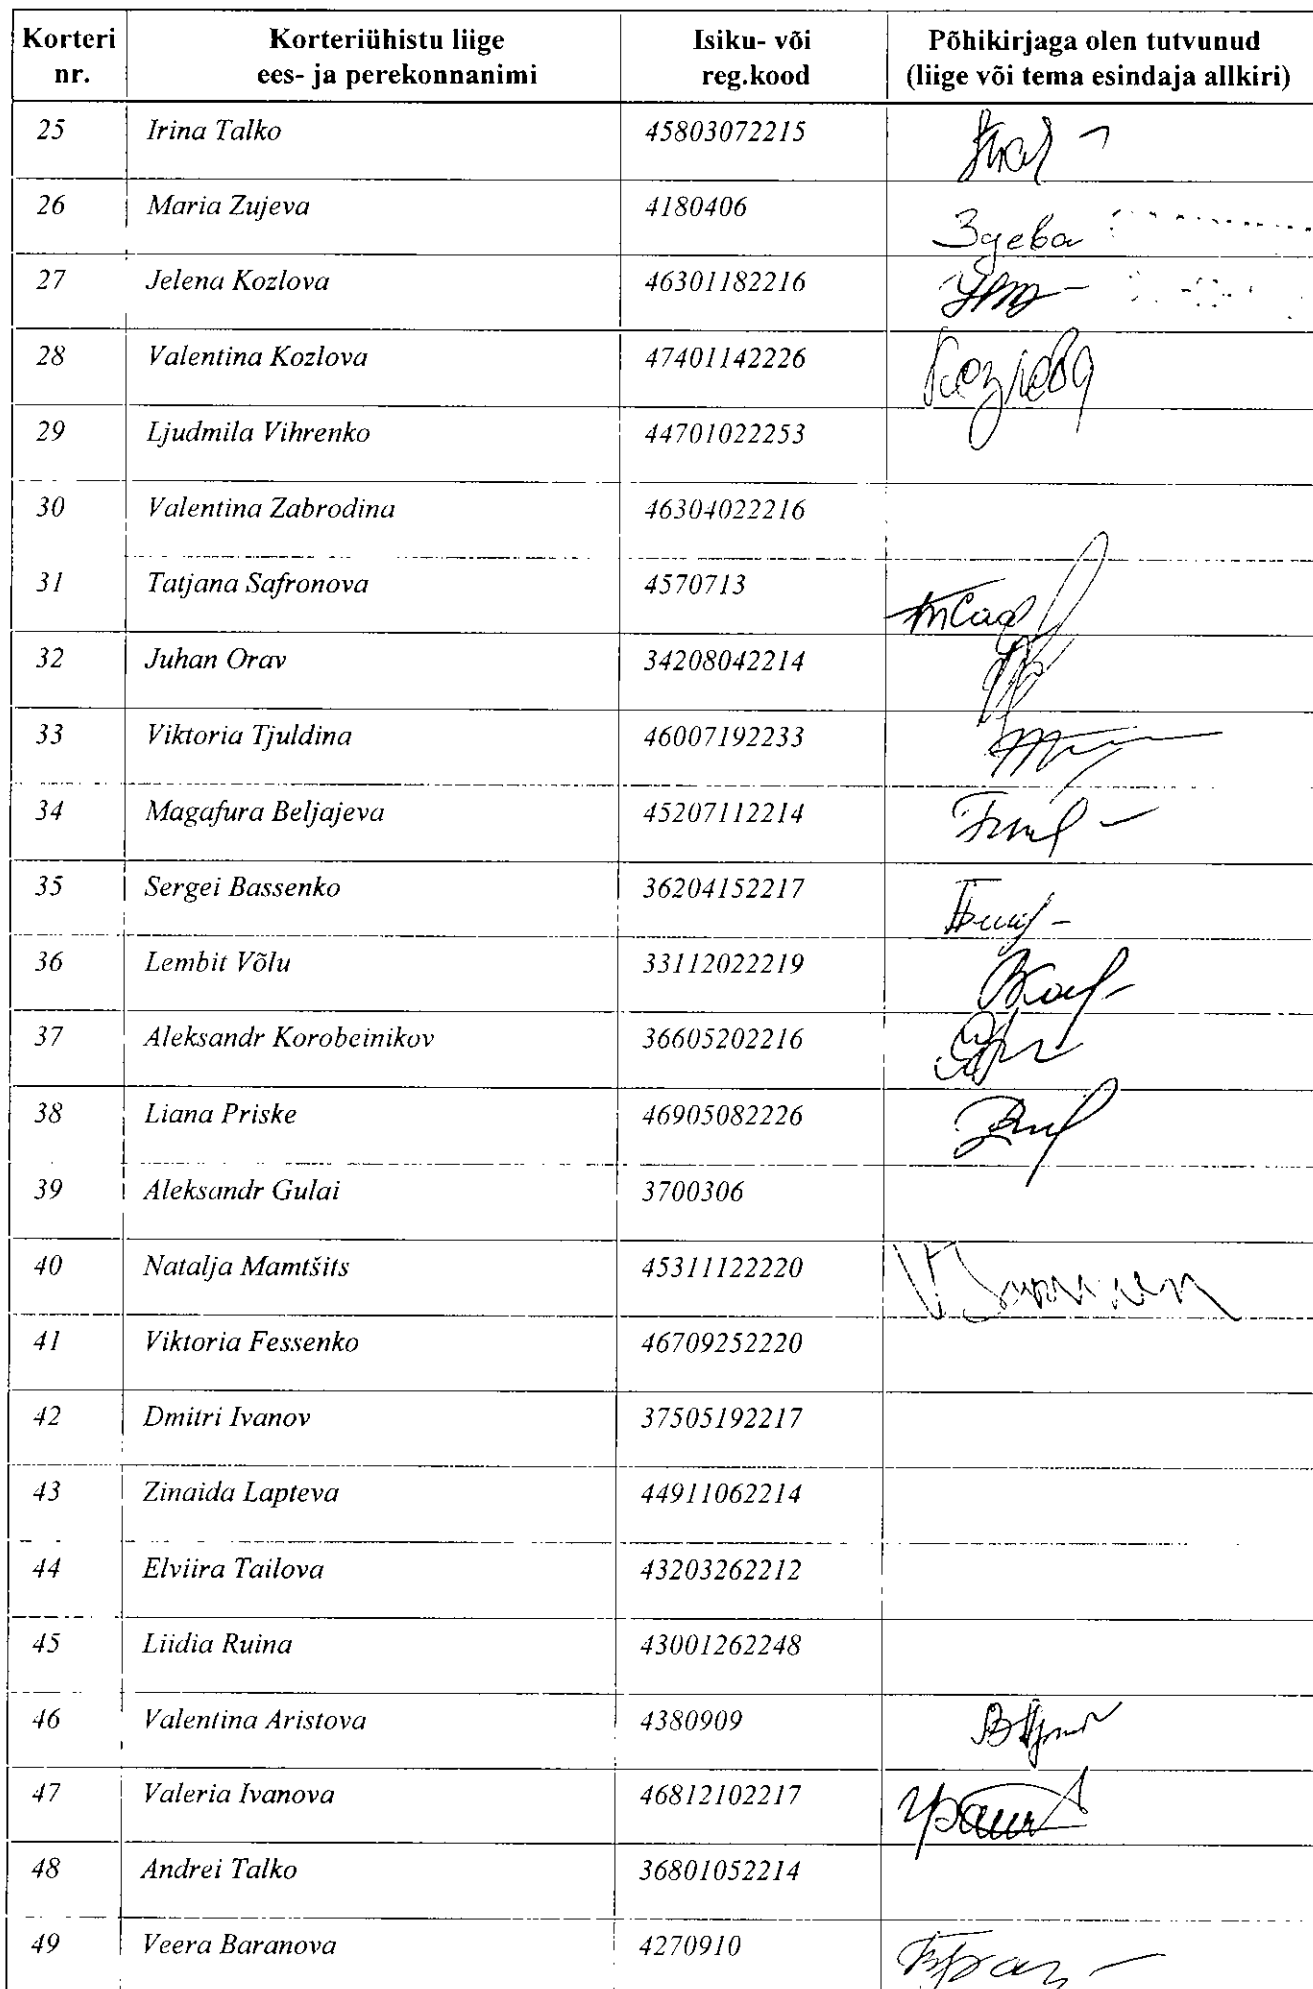 Korteri nr. Korteriühistu liige ees- ja perekonnanimi Isiku- või reg.kood Põhikirjaga olen tutvunud (liige või tema esindaja allkiri)
25 Irina Talko 45803072215
26 Maria Zujeva 4180406 Зуева
27 Jelena Kozlova 46301182216
28 Valentina Kozlova 47401142226 Козлова
29 Ljudmila Vihrenko 44701022253
30 Valentina Zabrodina 46304022216
31 Tatjana Safronova 4570713
32 Juhan Orav 34208042214
33 Viktoria Tjuldina 46007192233
34 Magafura Beljajeva 45207112214
35 Sergei Bassenko 36204152217
36 Lembit Võlu 33112022219
37 Aleksandr Korobeinikov 36605202216
38 Liana Priske 46905082226
39 Aleksandr Gulai 3700306
40 Natalja Mamtšits 45311122220
41 Viktoria Fessenko 46709252220
42 Dmitri Ivanov 37505192217
43 Zinaida Lapteva 44911062214
44 Elviira Tailova 43203262212
45 Liidia Ruina 43001262248
46 Valentina Aristova 4380909
47 Valeria Ivanova 46812102217
48 Andrei Talko 36801052214
49 Veera Baranova 4270910